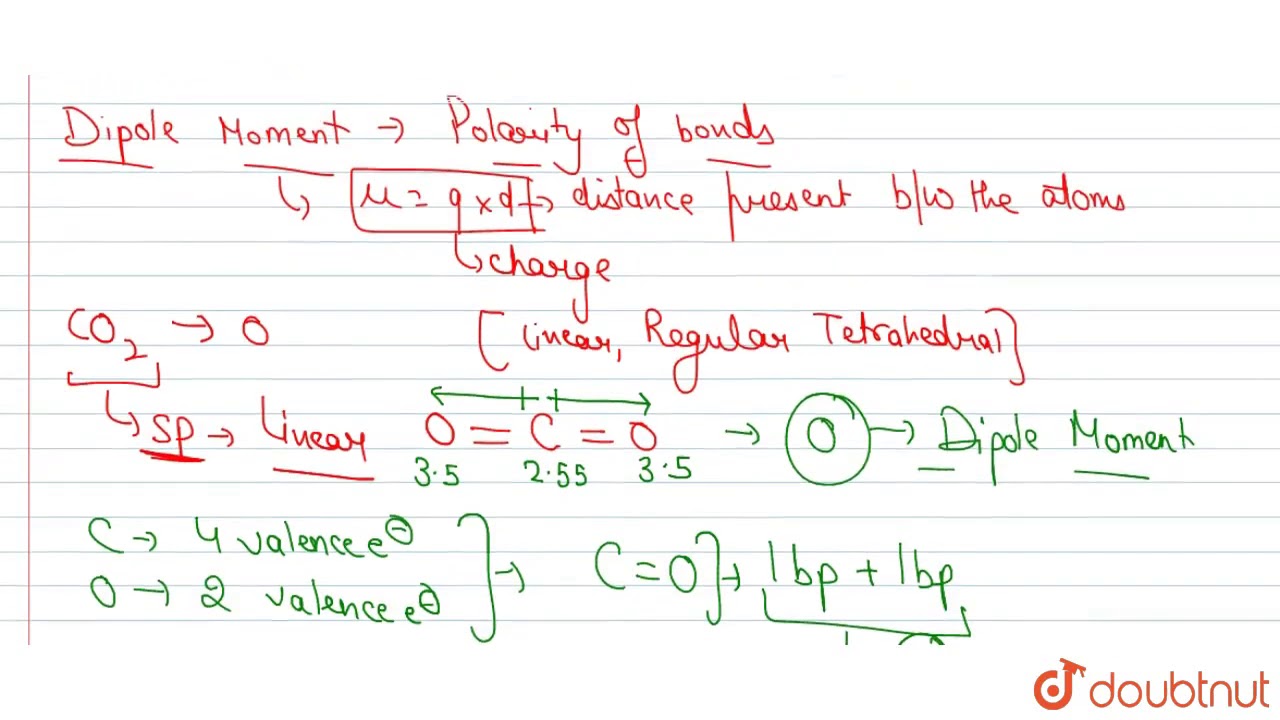 Dipole Moment → Polarity of bonds
↳ μ = q × d → distance present b/w the atoms
↳ charge
CO2 → 0 [Linear, Regular Tetrahedral]
↳ SP → Linear O = C = O → 0 → Dipole Moment
3.5 2.55 3.5
C → 4 valence e⊖
O → 2 valence e⊖
} → C = O } → 1bp + 1bp
doubtnut